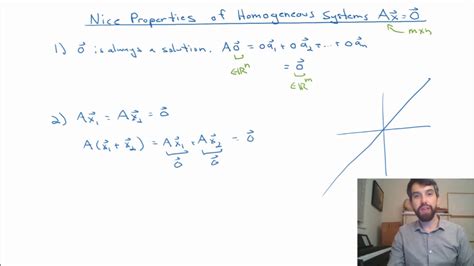 Nice Properties of Homogeneous Systems Ax⃗=0⃗
m×n
1) 0⃗ is always a solution. A0⃗ = 0a⃗₁ + 0a⃗₂ + ... + 0a⃗ₙ
∈ℝⁿ = 0⃗
∈ℝᵐ
2) Ax⃗₁ = Ax⃗₂ = 0⃗
A(x⃗₁+x⃗₂) = Ax⃗₁ + Ax⃗₂ = 0⃗
0⃗ 0⃗